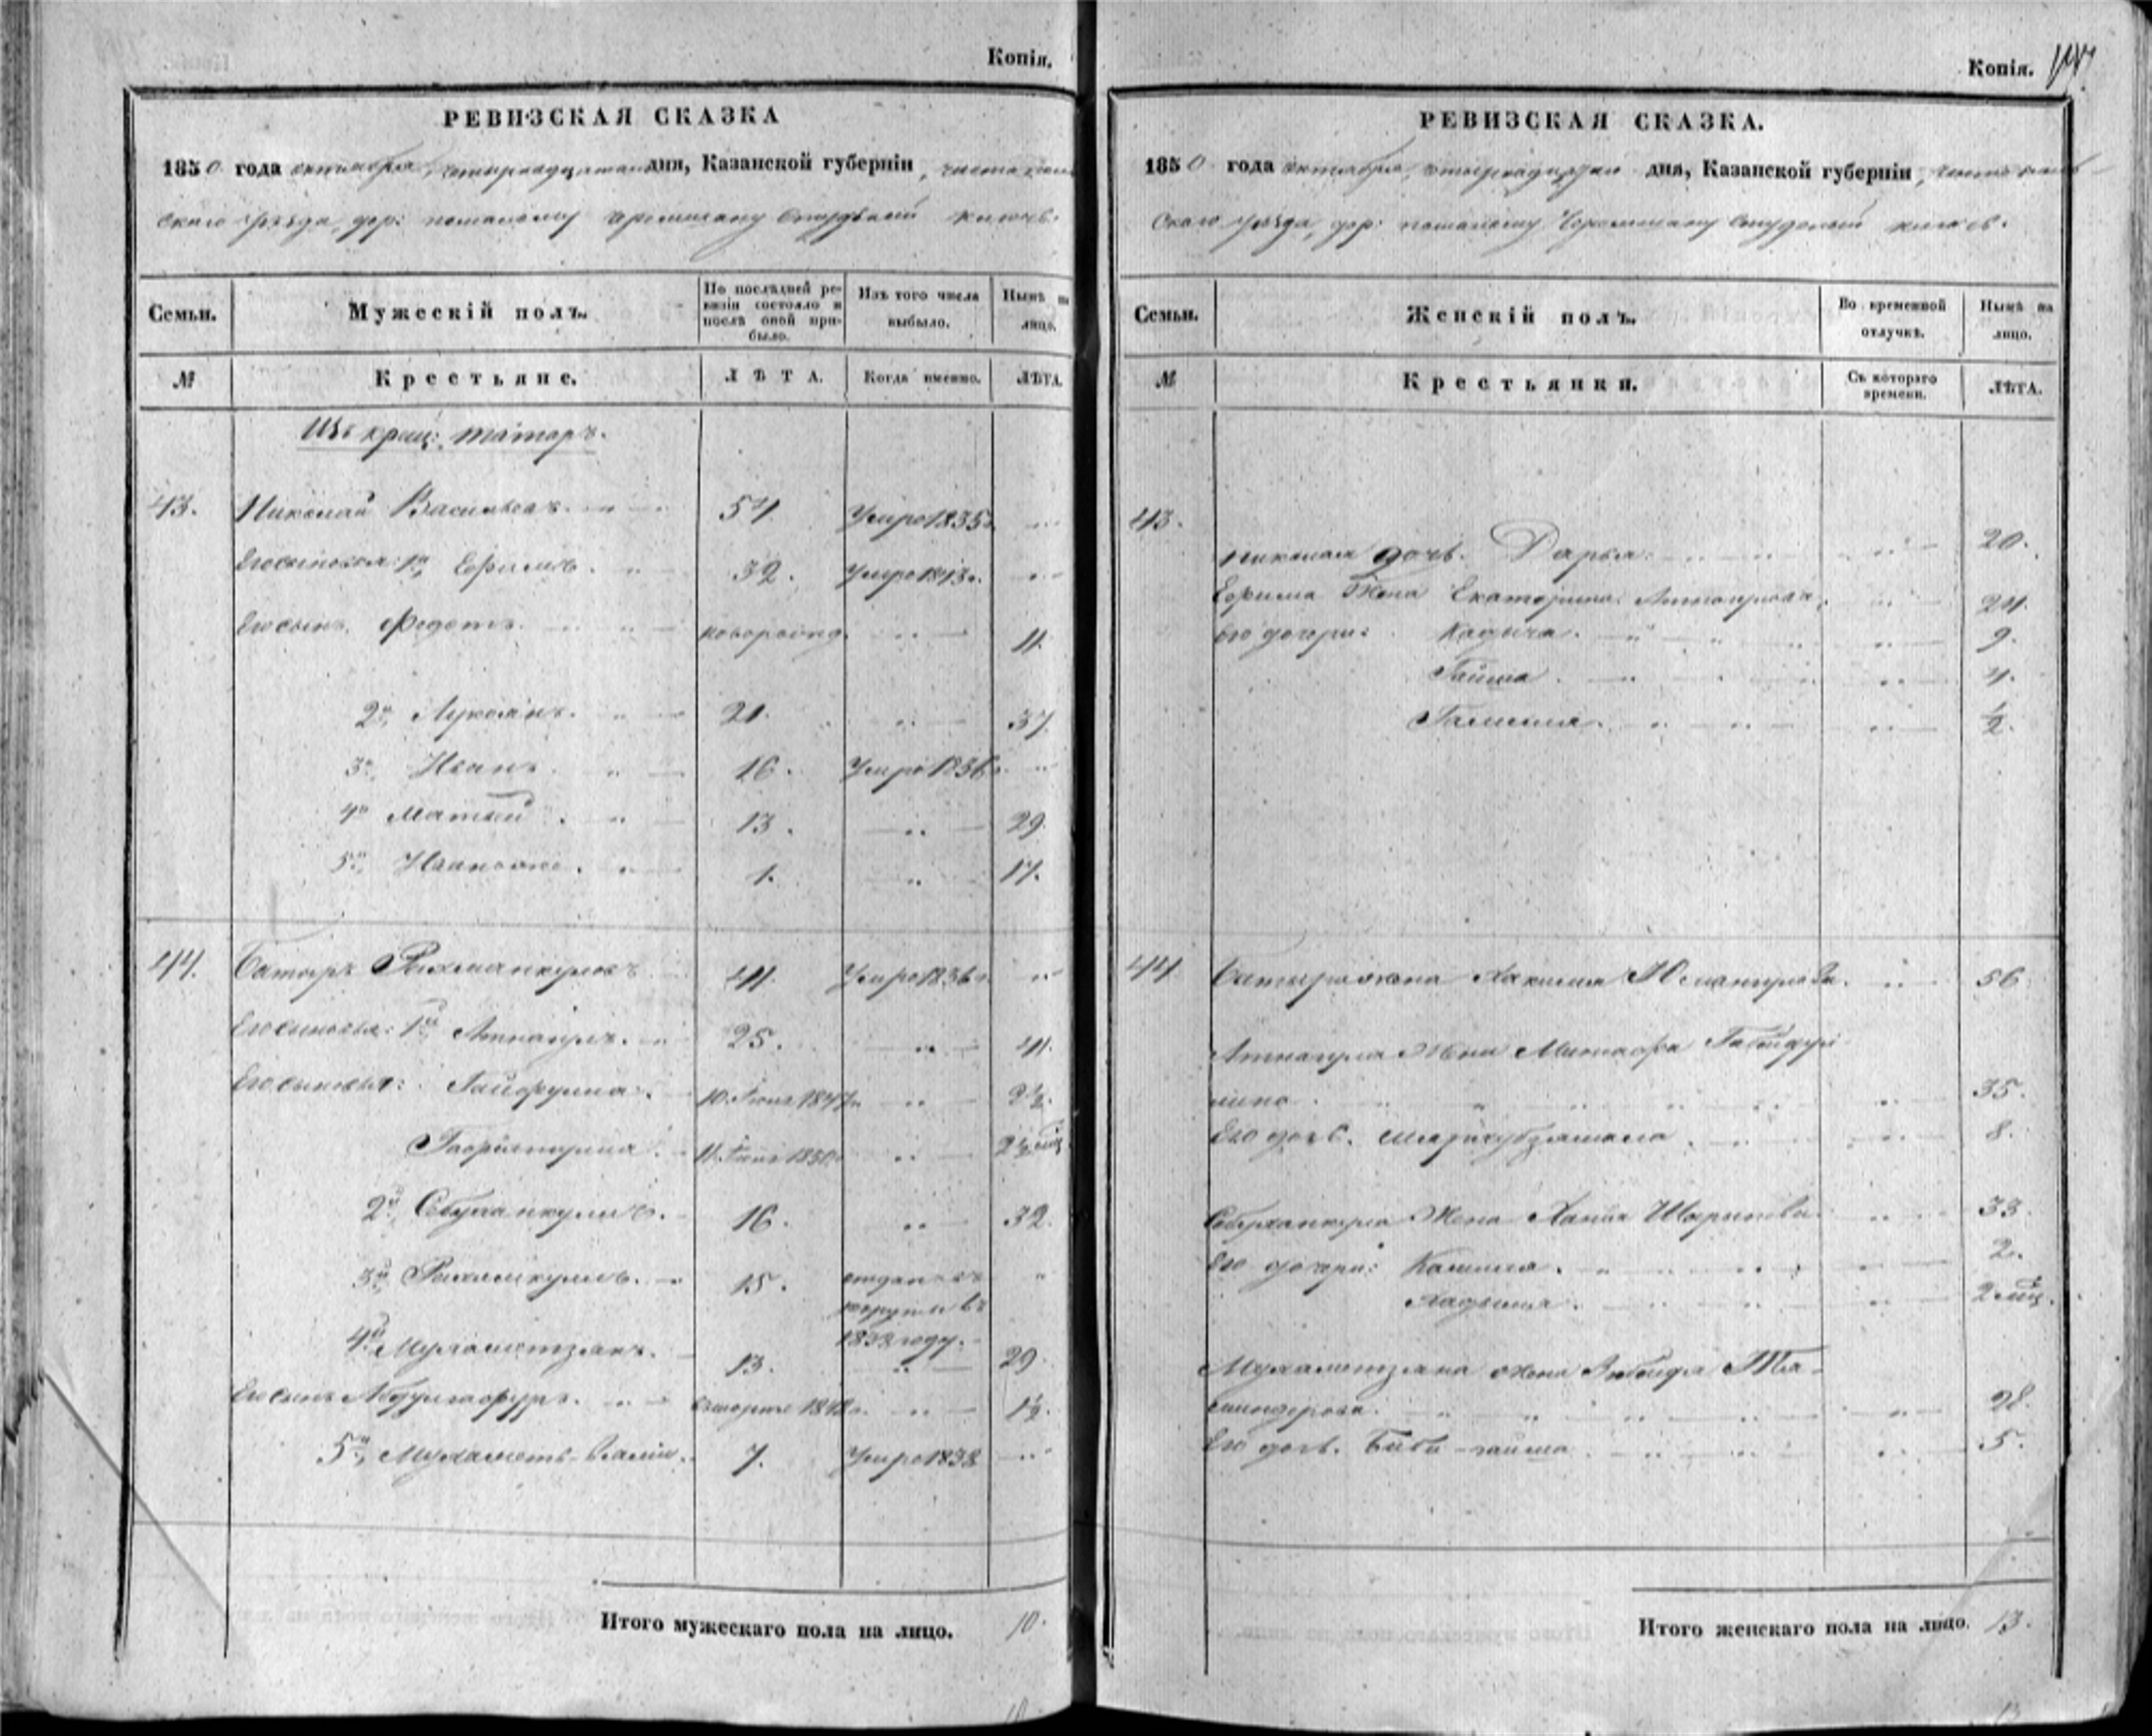 Копія.
РЕВИЗСКАЯ СКАЗКА
1850 года октября, четырнадцатаго дня, Казанской губерніи, чистополь
скаго уѣзда, дер: по малому черемшану Студеный ключь.
Семьи.
Мужескій полъ.
По послѣдней ре-
визіи состояло и
послѣ оной при-
было.
Изъ того числа
выбыло.
Нынѣ на
лицо.
№
Крестьяне.
ЛѢТА.
Когда именно.
ЛѢТА.
Изъ крещ: татаръ.
43. Николай Васильевъ. 54 Умре 1835
Его сыновья: 1й Ефимъ. 32. Умре 1843.
Его сынъ. Федотъ. новорожд. 11.
2й, Лукоянъ. 21. 37
3й, Иванъ. 16. Умре 1836
4й Матвий 13. 29.
5й, 1. 17.
44. Батыръ Рахманкуловъ 41. Умре 1836
Его сыновья: 1й Атнагулъ. 25. 41.
Его сыновья: Гайфулла. 10. Іюля 1847 2½.
11. 1850 2½ мѣц
2й, 16. 32.
3й, Рахимкулъ. 15. отданъ въ
рекруты въ
4й Мухаметзянъ. 1832 году.
13. 29.
Его сынъ Абдулгафуръ. 1½.
5й, Мухаметъ-Вали. 7. Умре 1838
Итого мужескаго пола на лицо. 10.
Копія.
РЕВИЗСКАЯ СКАЗКА.
1850 года октября, четырнадцатаго дня, Казанской губерніи, чистополь
скаго уѣзда, дер: по малому Черемшану Студеный ключь.
Семьи.
Женскій полъ.
Во временной
отлучкѣ.
Нынѣ на
лицо.
№
Крестьянки.
Съ котораго
времени.
ЛѢТА.
43.
Николая дочь. Дарья. 20.
Ефима Жена Екатерина 24.
Его дочери: Кадыча. 9.
Гайша 4.
Галимя. ½.
44. Батыра жена Хакимя 56
Атнагула Жена
35.
Его дочь. 8.
Жена 33.
Его дочери: Камиля. 2.
Хадыча. 2 мѣц.
Мухаметзяна жена
28.
Его дочь. Биби-гайша 5.
Итого женскаго пола на лицо. 13.